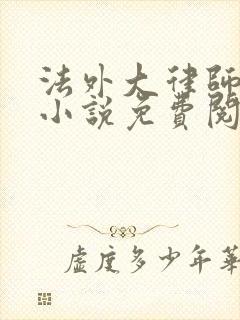 法外大律師
小說免費閱
虛度多少年華